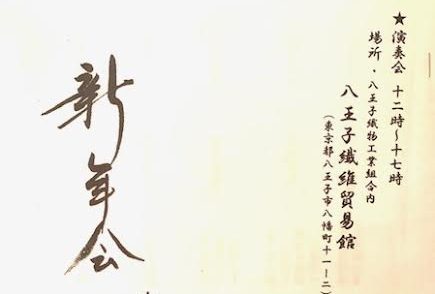 ★演奏会 十二時～十七時
場所・八王子織物工業組合内
八王子繊維貿易館
(東京都八王子市八幡町十一ー二)
新年会